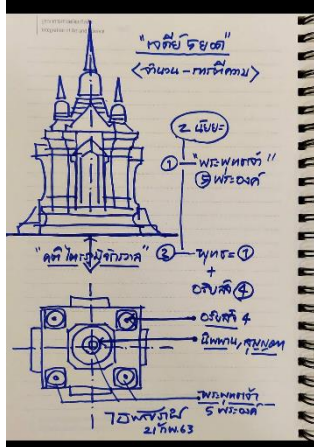 "เจดีย์ 5 ยอด"
<จำนวน - การตีความ>
2 นัยยะ
① "พระพุทธเจ้า"
⑤ พระองค์
"คติไตรภูมิจักรวาล"
② พุทธะ ①
+
อริยสัจ ④
อริยสัจ 4
นิพพาน, สุญญตา
พระพุทธเจ้า
5 พระองค์
21 กพ. 63